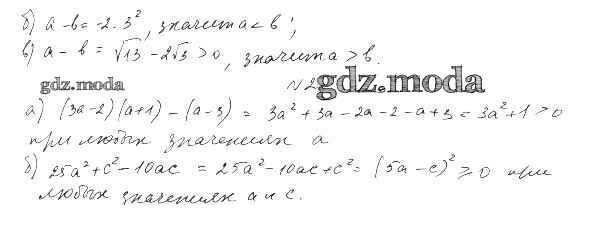 б) a - b = -2·3², значит a < b ;
в) a - b = √13 - 2√3 > 0, значит a > b.
gdz.moda
№2 gdz.moda
а) (3a-2)(a+1) - (a-3) = 3a² + 3a - 2a - 2 - a + 3 = 3a² + 1 > 0
при любых значениях a
б) 25a² + c² - 10ac = 25a² - 10ac + c² = (5a - c)² ≥ 0 при
любых значениях a и c.